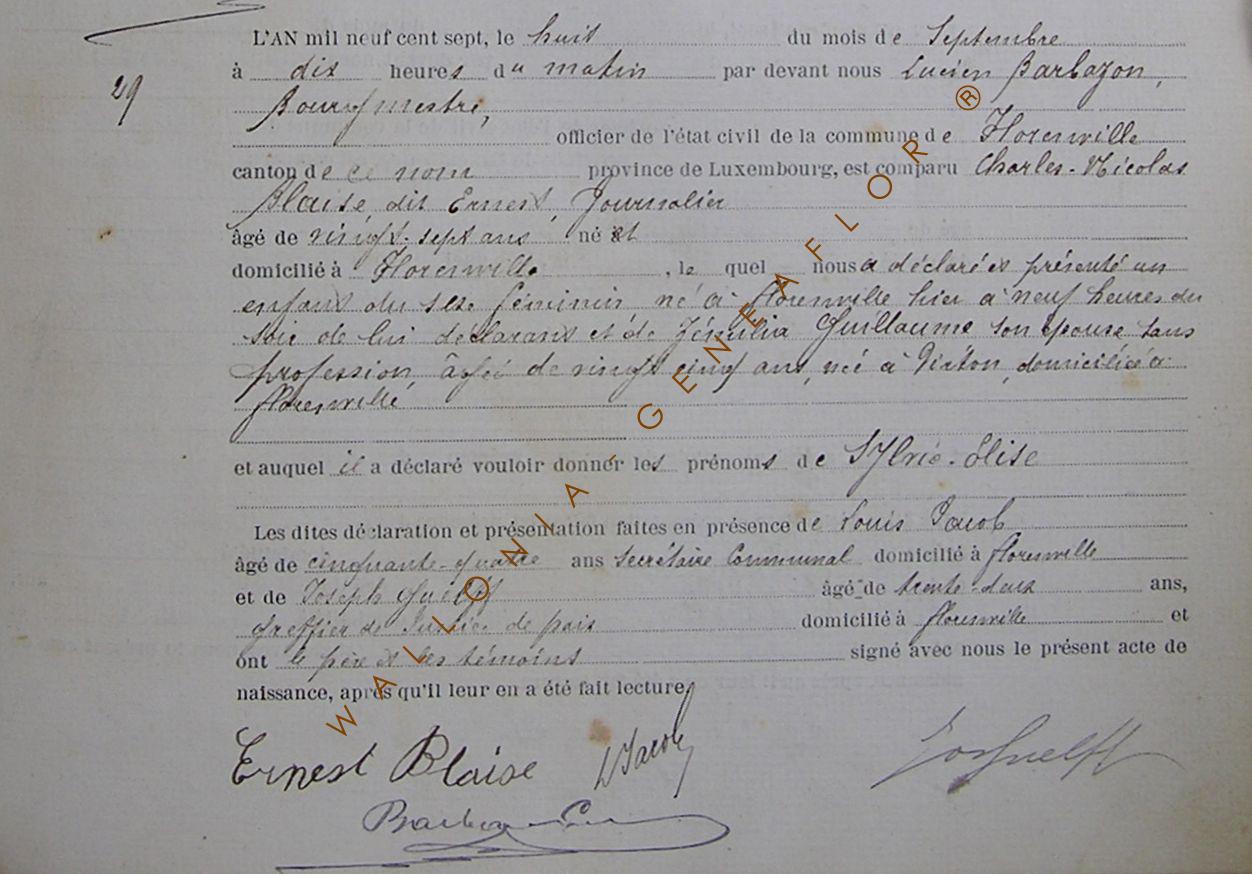 L'AN mil neuf cent sept, le huit du mois de Septembre
29
à dix heures du matin par devant nous Lucien Barbazon,
Bourgmestre,
officier de l'état civil de la commune de Florenville
canton de ce nom province de Luxembourg, est comparu Charles-Nicolas
Blaise, dit Ernest, Journalier
âgé de vingt-sept ans né et
domicilié à Florenville, le quel nous a déclaré et présenté un
enfant du sexe féminin né à Florenville hier à neuf heures du
soir de lui déclarant et de Guillaume son épouse sans
profession, âgée de vingt cinq ans, née à Virton, domiciliée à
Florenville
et auquel il a déclaré vouloir donner les prénoms de Sylvie-Elise
Les dites déclaration et présentation faites en présence de Louis Jacob
âgé de cinquante-quatre ans secrétaire communal domicilié à Florenville
et de Joseph Guelff âgé de trente-deux ans,
greffier de Justice de paix domicilié à Florenville et
ont le père et les témoins signé avec nous le présent acte de
naissance, après qu'il leur en a été fait lecture
Ernest Blaise LJacob Jos Guelff
WALLONIA-GENEAFLOR®